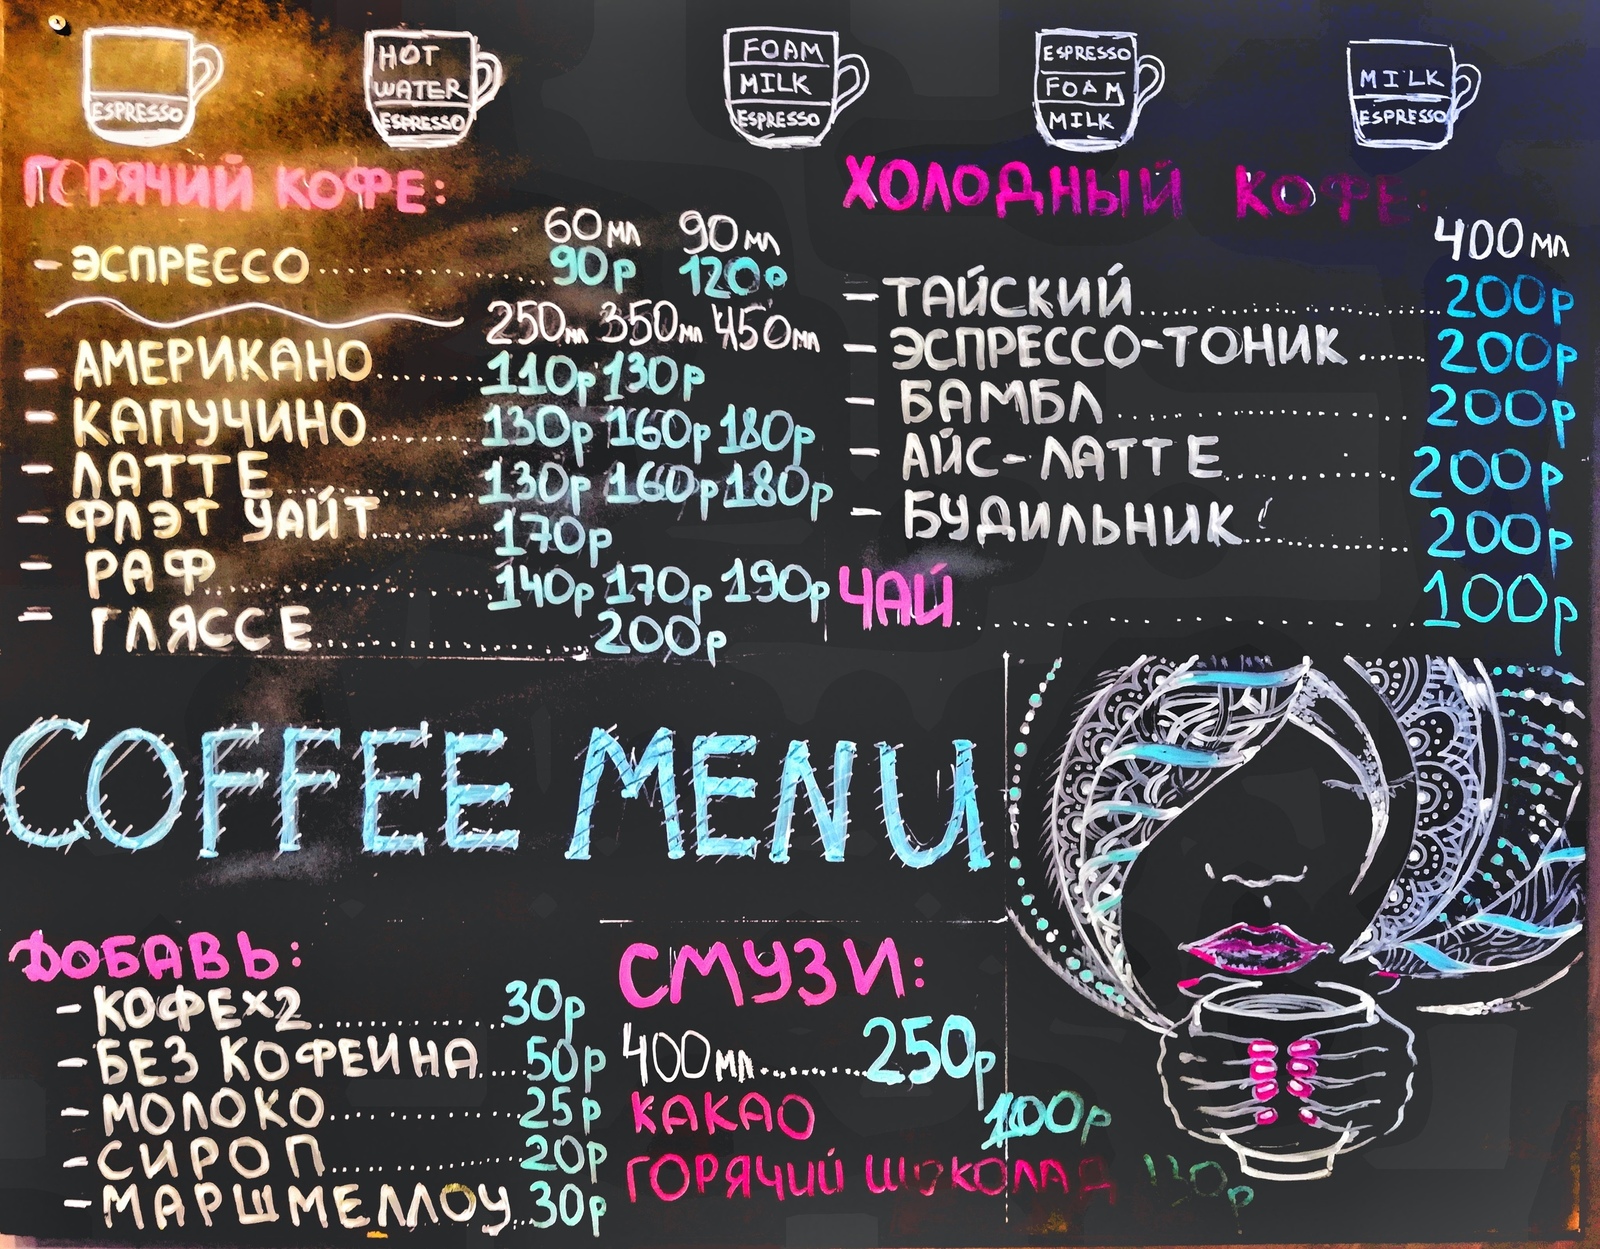 ESPRESSO
HOT
WATER
ESPRESSO
FOAM
MILK
ESPRESSO
ESPRESSO
FOAM
MILK
MILK
ESPRESSO
ГОРЯЧИЙ КОФЕ:
60мл 90мл
- ЭСПРЕССО.......... 90р 120р
250мл 350мл 450мл
- АМЕРИКАНО.......... 110р 130р
- КАПУЧИНО.......... 130р 160р 180р
- ЛАТТЕ.......... 130р 160р 180р
- ФЛЭТ УАЙТ.......... 170р
- РАФ.......... 140р 170р 190р
- ГЛЯССЕ.......... 200р
ХОЛОДНЫЙ КОФЕ:
400мл
- ТАЙСКИЙ.......... 200р
- ЭСПРЕССО-ТОНИК...... 200р
- БАМБЛ.......... 200р
- АЙС-ЛАТТЕ.......... 200р
- БУДИЛЬНИК.......... 200р
ЧАЙ.......... 100р
COFFEE MENU
ДОБАВЬ:
- КОФЕ×2.......... 30р
- БЕЗ КОФЕИНА..... 50р
- МОЛОКО.......... 25р
- СИРОП.......... 20р
- МАРШМЕЛЛОУ... 30р
СМУЗИ:
400мл........ 250р
КАКАО 100р
ГОРЯЧИЙ ШОКОЛАД 130р